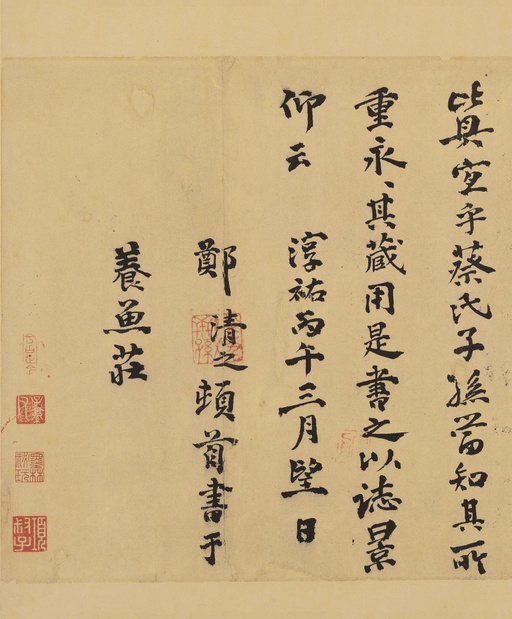 此真宜乎蔡氏子孫當知其所
重永〻其藏用是書之以誌景
仰云 淳祐丙午三月望日
鄭清之頓首書于
養魚莊